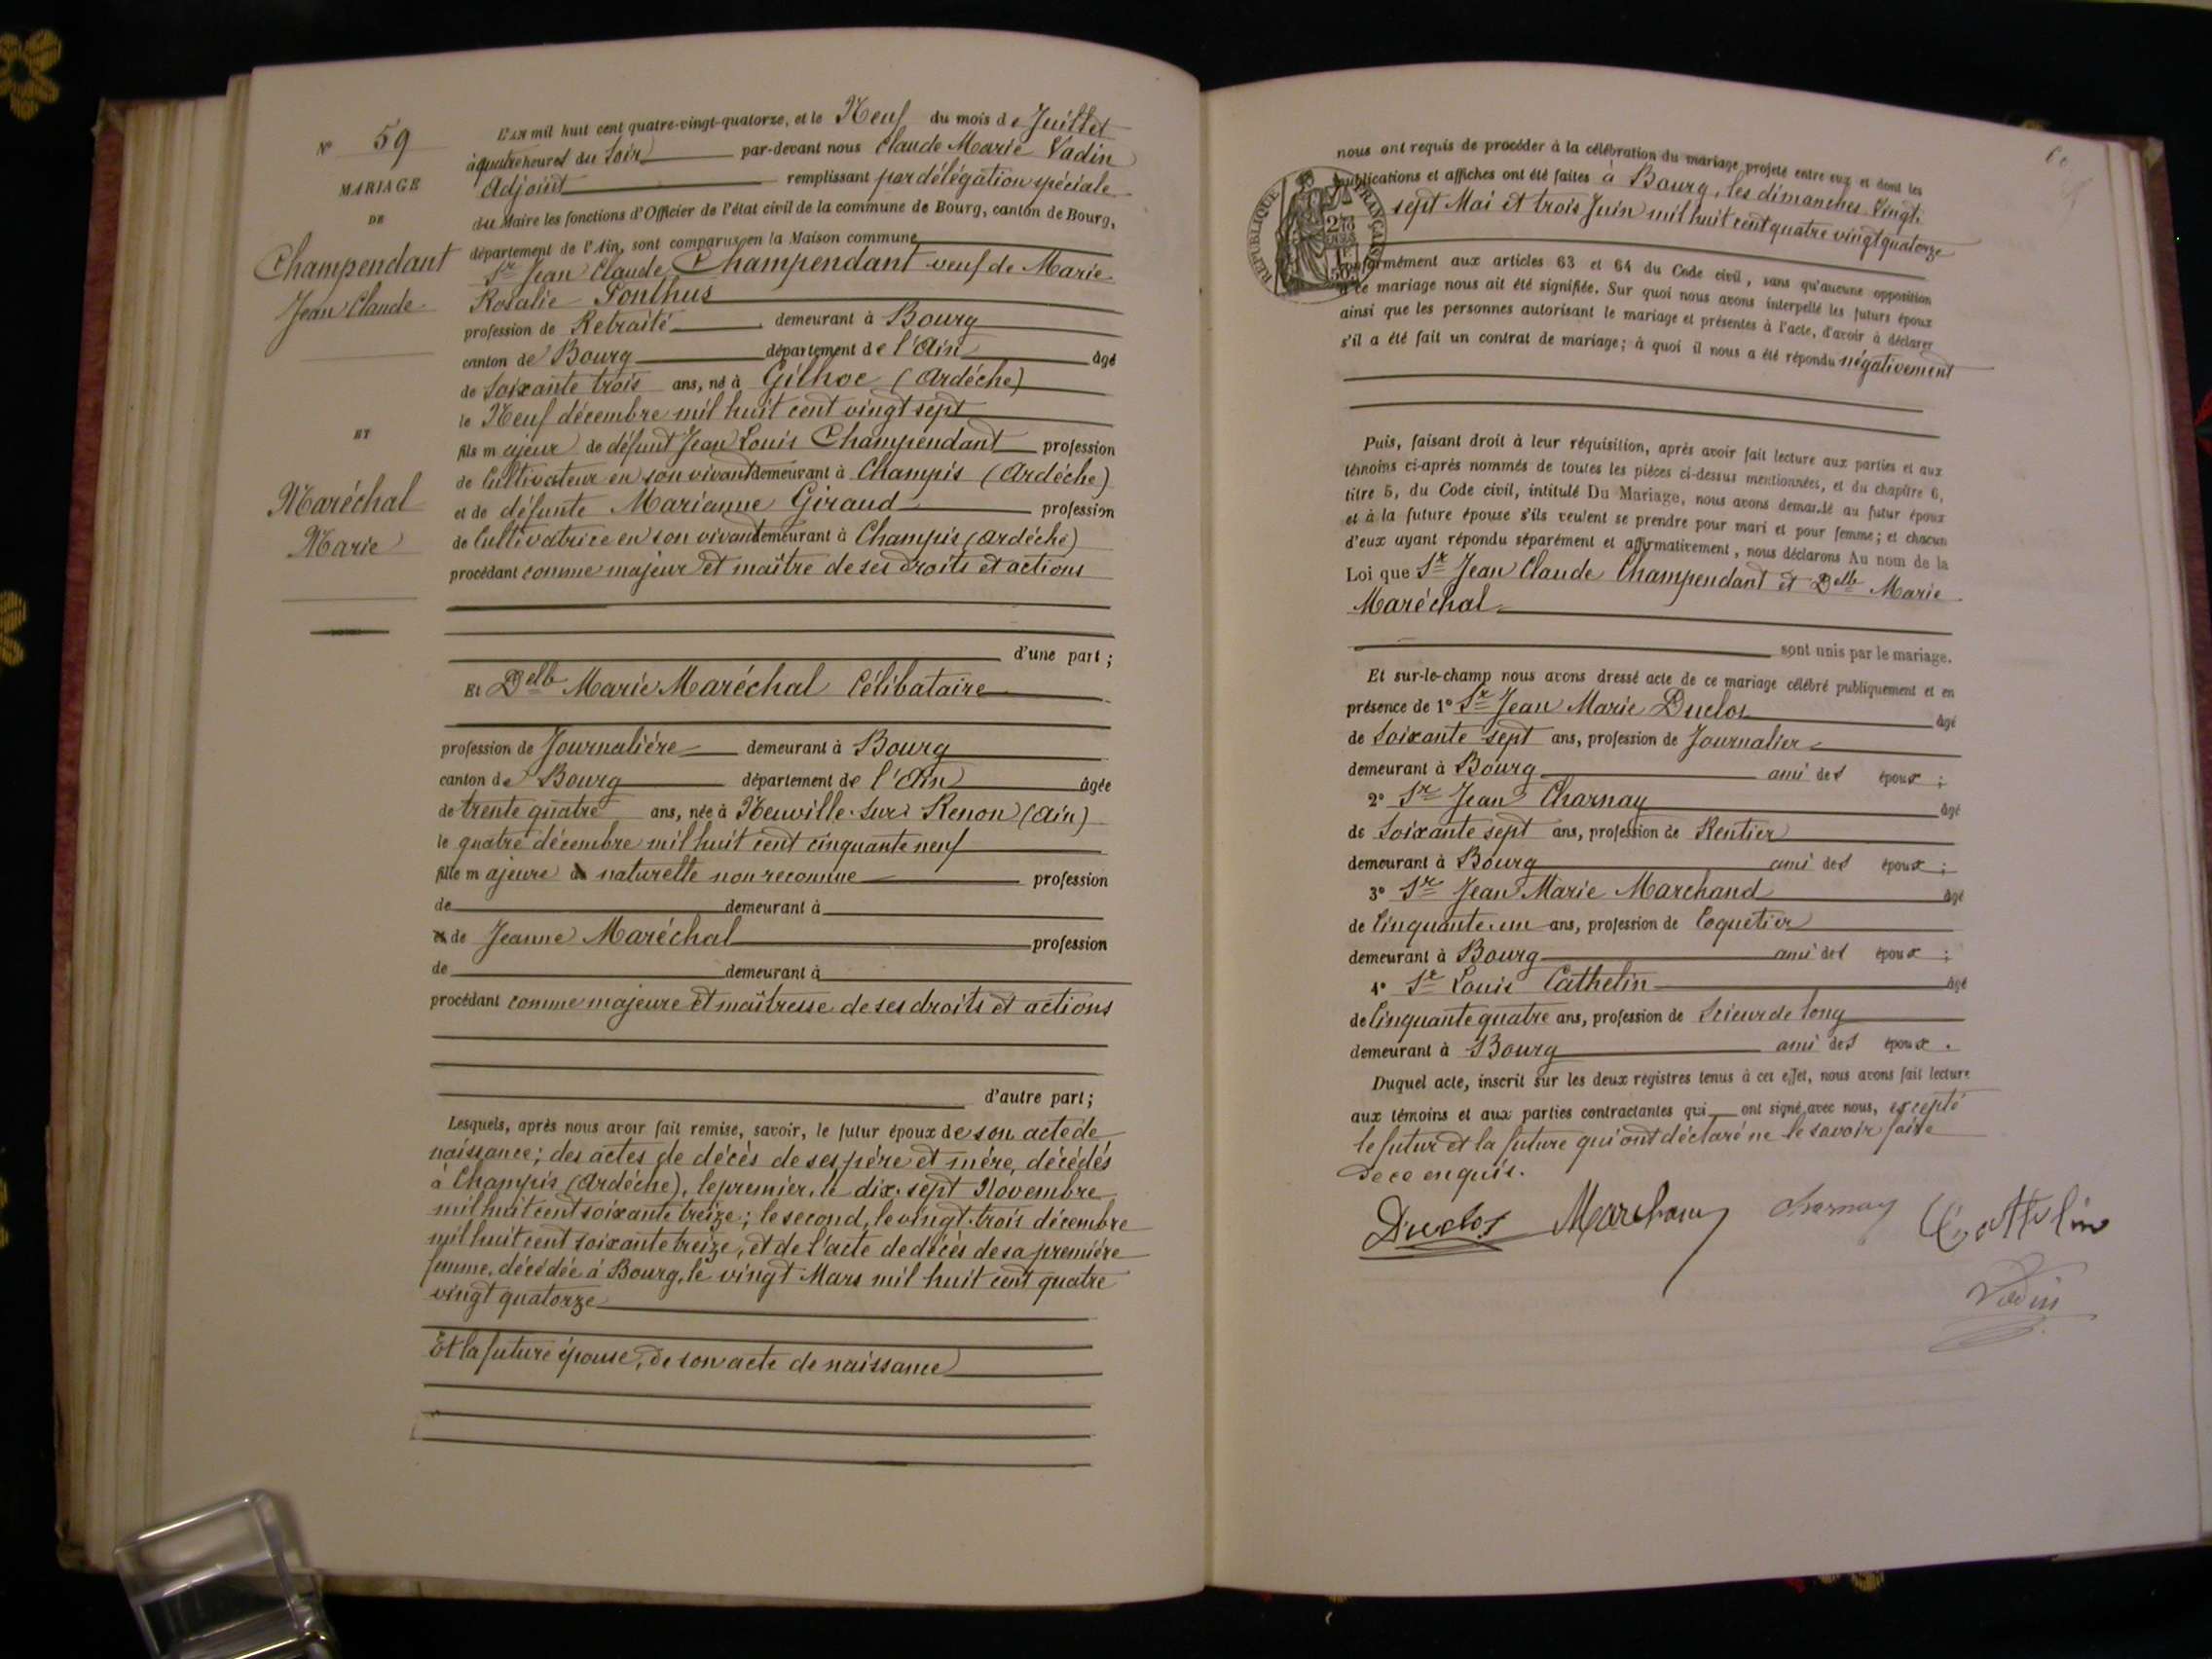 N° 59
MARIAGE
DE
Champendant
Jean Claude
ET
Maréchal
Marie
L'AN mil huit cent quatre-vingt-quatorze, et le Neuf du mois de Juillet
à quatre heures du Soir par-devant nous Claude Marie Vadin
Adjoint remplissant par délégation spéciale
du Maire les fonctions d'Officier de l'état civil de la commune de Bourg, canton de Bourg,
département de l'Ain, sont comparus en la Maison commune
Sr Jean Claude Champendant veuf de Marie
Rosalie Ponthus
profession de Retraité demeurant à Bourg
canton de Bourg département de l'Ain âgé
de Soixante trois ans, né à Gilhoc (Ardéche)
le Neuf décembre mil huit cent vingt sept
fils majeur de défunt Jean Louis Champendant profession
de Cultivateur en son vivant demeurant à Champis (Ardéche)
et de défunte Marianne Giraud profession
de Cultivatrice en son vivant demeurant à Champis (Ardéche)
procédant comme majeur et maître de ses droits et actions
d'une part ;
Et Delle Marie Maréchal Célibataire
profession de Journaliére demeurant à Bourg
canton de Bourg département de l'Ain âgée
de trente quatre ans, née à Neuville-sur-Renon (Ain)
le quatre décembre mil huit cent cinquante neuf
fille majeure naturelle non reconnue profession
de demeurant à
et de Jeanne Maréchal profession
de demeurant à
procédant comme majeure et maîtresse de ses droits et actions
d'autre part ;
Lesquels, après nous avoir fait remise, savoir, le futur époux de son acte de
naissance ; des actes de décès de ses père et mère, décédés
à Champis (Ardéche), le premier, le dix-sept Novembre
mil huit cent soixante treize ; le second, le vingt-trois décembre
mil huit cent soixante treize, et de l'acte de décès de sa premiére
femme, décédée à Bourg, le vingt Mars mil huit cent quatre
vingt quatorze
Et la future épouse, de son acte de naissance
nous ont requis de procéder à la célébration du mariage projeté entre eux et dont les
publications et affiches ont été faites à Bourg, les dimanches Vingt-
sept Mai et trois Juin mil huit cent quatre vingt quatorze
RÉPUBLIQUE FRANÇAISE
conformément aux articles 63 et 64 du Code civil, sans qu'aucune opposition
à ce mariage nous ait été signifiée. Sur quoi nous avons interpellé les futurs époux
ainsi que les personnes autorisant le mariage et présentes à l'acte, d'avoir à déclarer
s'il a été fait un contrat de mariage ; à quoi il nous a été répondu négativement
Puis, faisant droit à leur réquisition, après avoir fait lecture aux parties et aux
témoins ci-après nommés de toutes les pièces ci-dessus mentionnées, et du chapitre 6,
titre 5, du Code civil, intitulé Du Mariage, nous avons demandé au futur époux
et à la future épouse s'ils veulent se prendre pour mari et pour femme ; et chacun
d'eux ayant répondu séparément et affirmativement, nous déclarons Au nom de la
Loi que Sr Jean Claude Champendant et Delle Marie
Maréchal
sont unis par le mariage.
Et sur-le-champ nous avons dressé acte de ce mariage célébré publiquement et en
présence de 1° Sr Jean Marie Duclos âgé
de Soixante sept ans, profession de Journalier
demeurant à Bourg ami des époux ;
2° Sr Jean Charnay âgé
de Soixante sept ans, profession de Rentier
demeurant à Bourg ami des époux ;
3° Sr Jean Marie Marchand âgé
de Cinquante-un ans, profession de Coquetier
demeurant à Bourg ami des époux ;
4° Sr Louis Cathelin âgé
de Cinquante quatre ans, profession de Scieur de long
demeurant à Bourg ami des époux .
Duquel acte, inscrit sur les deux registres tenus à cet effet, nous avons fait lecture
aux témoins et aux parties contractantes qui ont signé avec nous, excepté
le futur et la future qui ont déclaré ne le savoir faire
de ce enquis.
Duclos Marchand Charnay Cathelin
Vadin